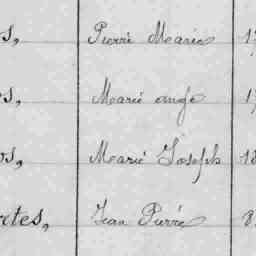 os, Pierre Marie 17
os, Marie ange 17
os, Marie Joseph 18
rtes, Jean Pierre 8